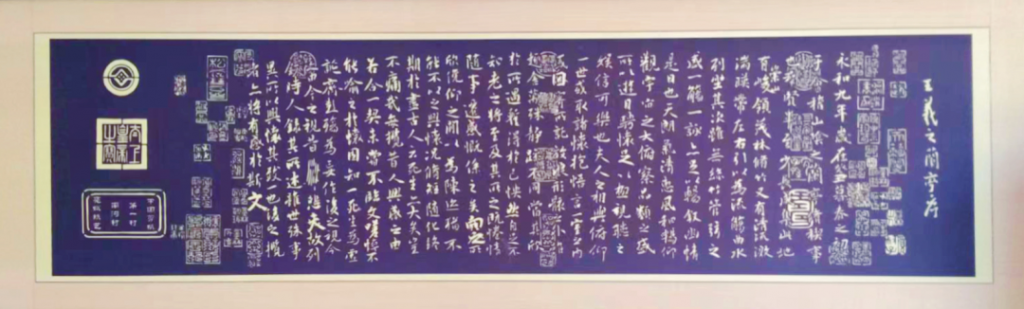 王羲之蘭亭序
永和九年歲在癸丑暮春之初
于會稽山陰之蘭亭脩稧事
群賢畢至少長咸集此地
有峻領茂林脩竹又有清流激
湍暎帶左右引以為流觴曲水
列坐其次雖無絲竹管弦之
盛一觴一詠亦足以暢敘幽情
是日也天朗氣清惠風和暢仰
觀宇宙之大俯察品類之盛
所以遊目騁懷足以極視聽之
娛信可樂也夫人之相與俯仰
一世或取諸懷抱悟言一室之內
或因寄所託放浪形骸之外雖
趣舍萬殊靜躁不同當其欣
於所遇蹔得於己怏然自足不
知老之將至及其所之既惓情
隨事遷感慨係之矣向之所
欣俛仰之閒以為陳迹猶不
能不以之興懷況脩短隨化終
期於盡古人云死生亦大矣豈
不痛哉每攬昔人興感之由
若合一契未嘗不臨文嗟悼不
能喻之於懷固知一死生為虛
誕齊彭殤為妄作後之視今
亦由今之視昔悲夫故列
敘時人錄其所述雖世殊事
異所以興懷其致一也後之攬
者亦將有感於斯文